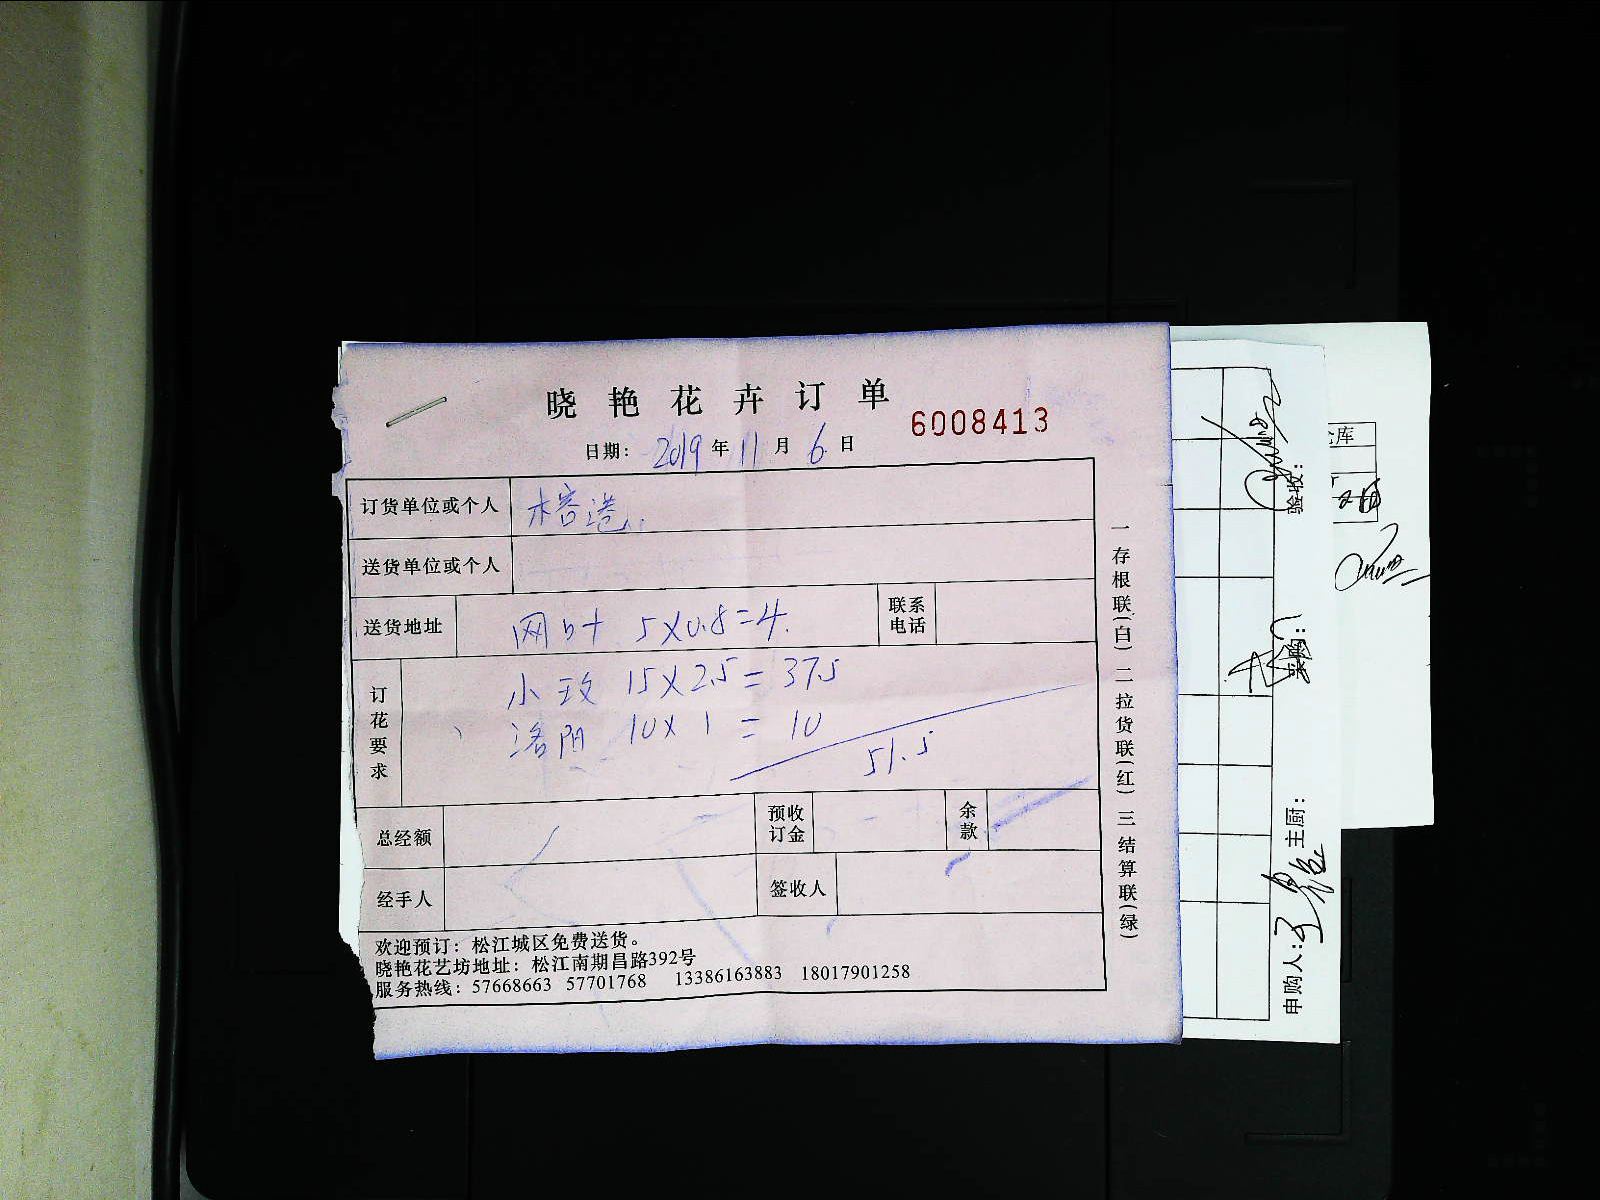 晓艳花卉订单
6008413
日期: 2019年11月6日
订货单位或个人 榕港
送货单位或个人
送货地址 网叶 5X0.8=4.
联系电话
订花要求 小玫 15X2.5=37.5
洛阳 10X1=10
51.5
总经额
预收订金
余款
经手人
签收人
欢迎预订：松江城区免费送货。
晓艳花艺坊地址：松江南期昌路392号
服务热线：57668663 57701768 13386163883 18017901258
一存根联(白) 二拉货联(红) 三结算联(绿)
验收:
采购:
主厨:
申购人:
库